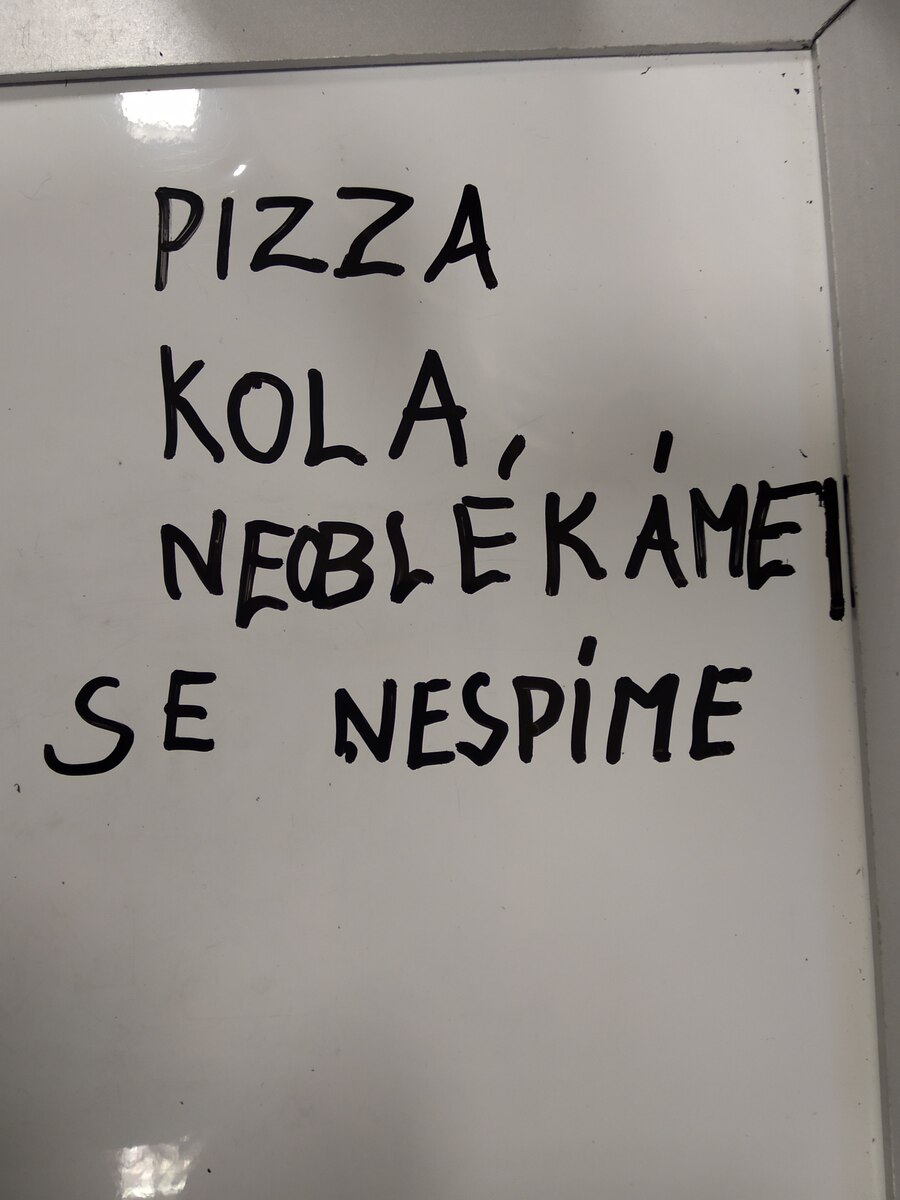 PIZZA
KOLA,
NEOBLÉKÁME
SE NESPÍME